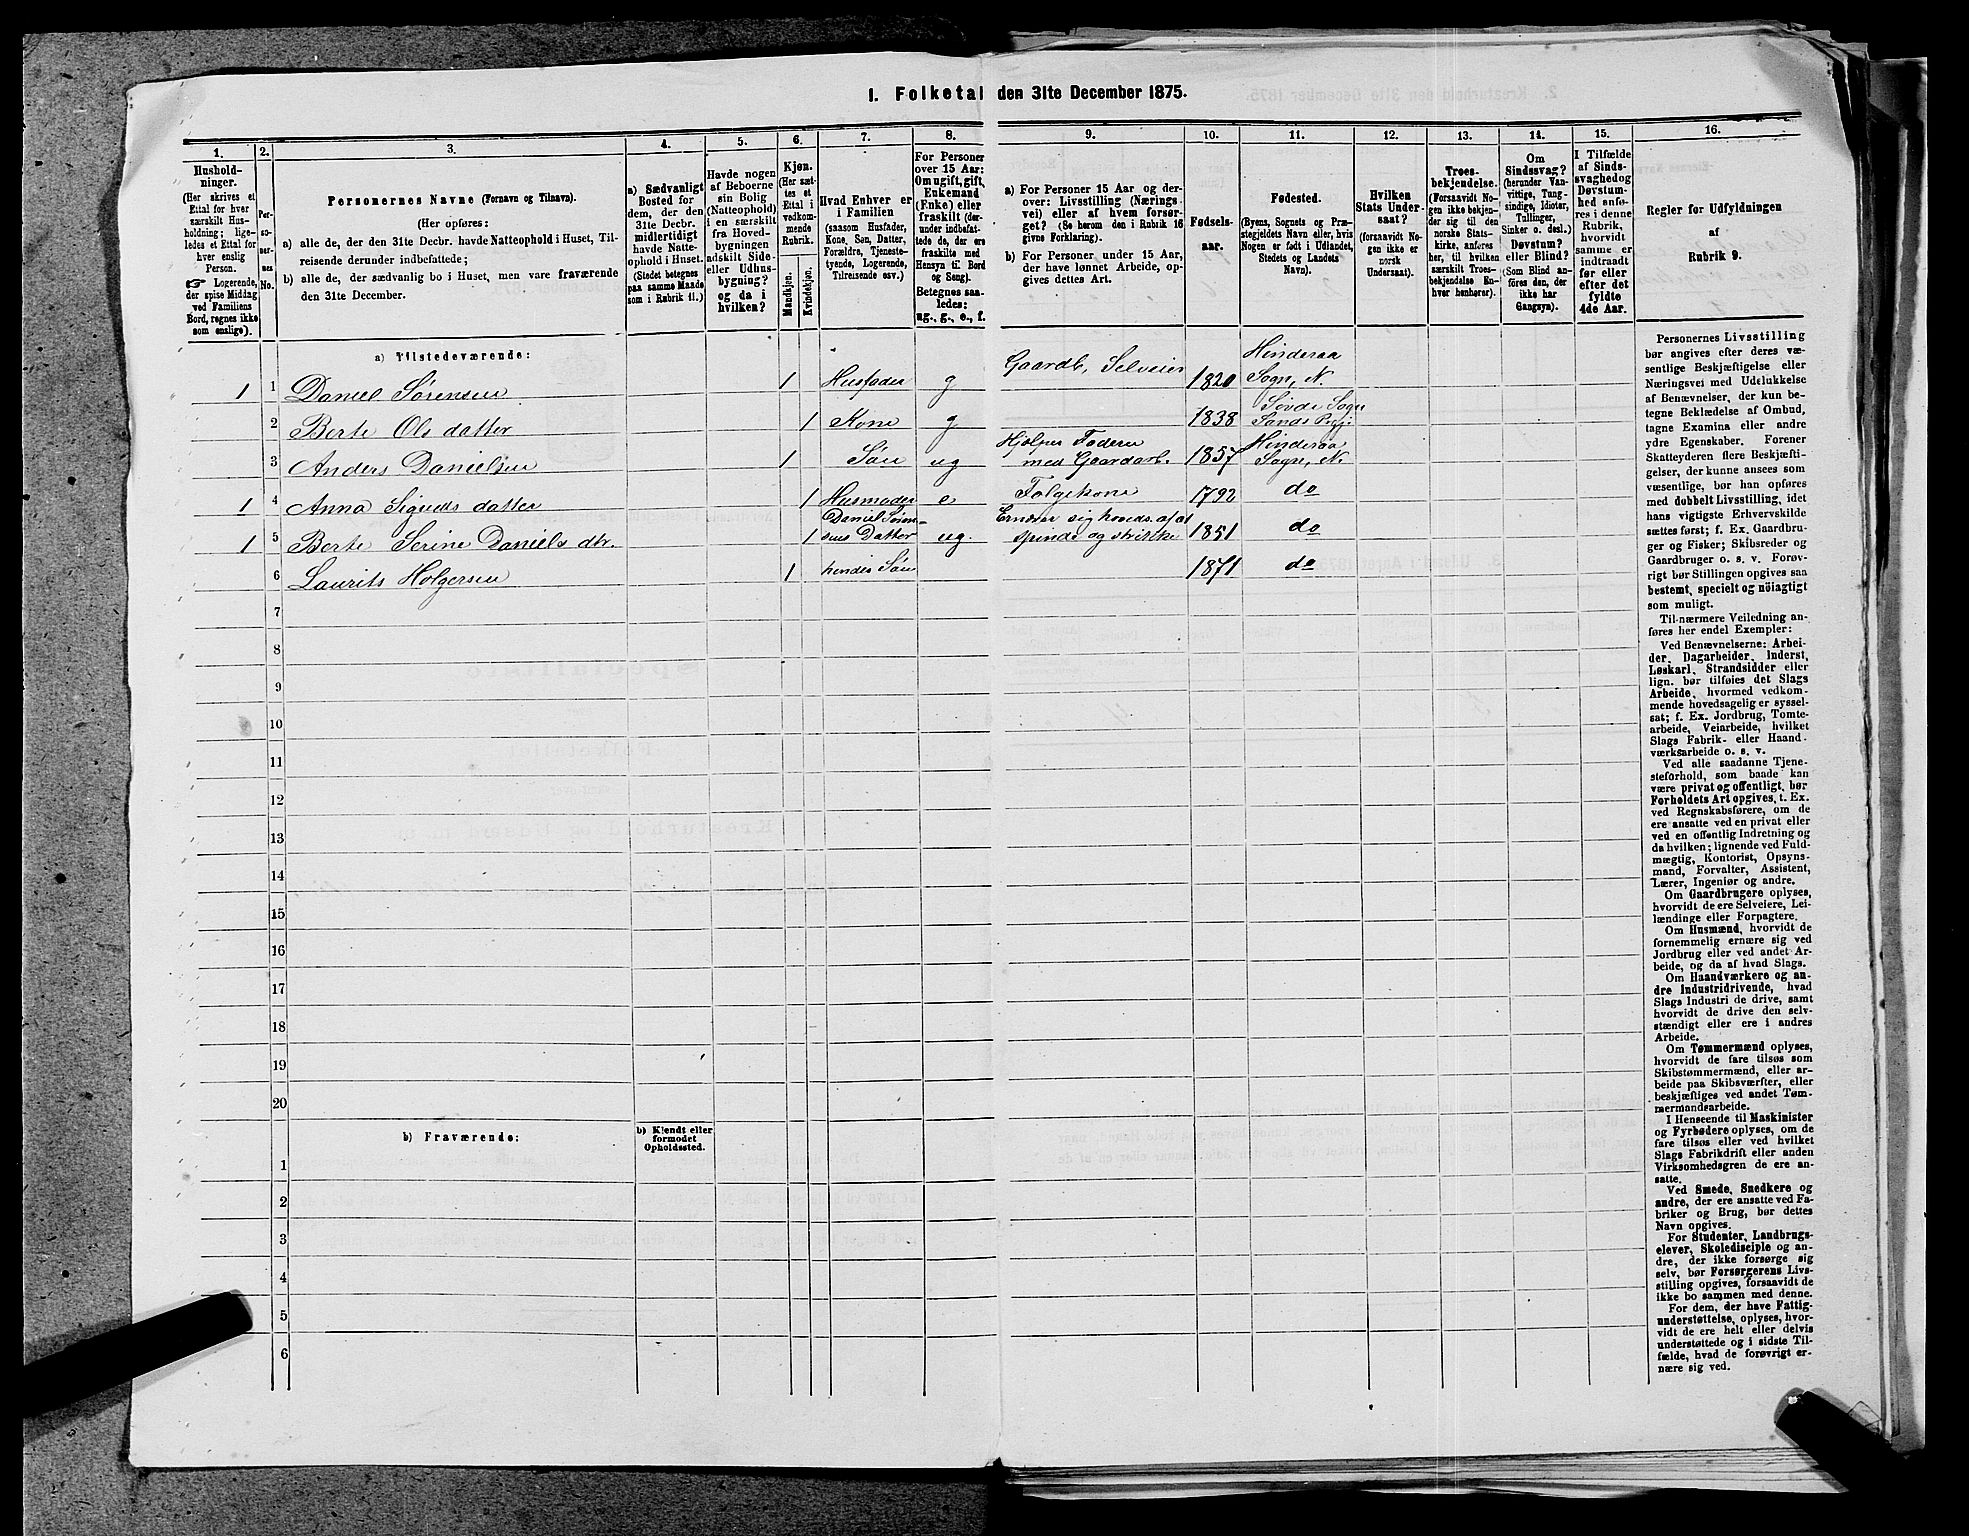 1. Folketal den 31te December 1875.
1.
Hushold-
ninger.
(Her skrives et
Ettal for hver
særskilt Hus-
holdning; lige-
ledes et Ettal for
hver enslig
Person.
☞ Logerende,
der spise Middag
ved Familiens
Bord, regnes ikke
som enslige).
2.
Per-
so-
ner-
nes
No.
3.
Personernes Navne (Fornavn og Tilnavn).
(Her opføres:
a) alle de, der den 31te Decbr. havde Natteophold i Huset, Til-
reisende derunder indbefattede;
b) alle de, der sædvanlig bo i Huset, men vare fraværende
den 31te December.
4.
a) Sædvanligt
Bosted for
dem, der den
31te Decbr.
midlertidigt
havde Natte-
ophold i Huset.
(Stedet betegnes
paa samme Maade
som i Rubrik 11.)
5.
Havde nogen
af Beboerne
sin Bolig
(Natteophold)
i en særskilt
fra Hoved-
bygningen
adskilt Side-
eller Udhus-
bygning?
og da i
hvilken?
6.
Kjøn.
(Her sæt-
tes et
Ettal i
vedkom-
mende
Rubrik.
Mandkjøn.
Kvindekjøn.
7.
Hvad Enhver er
i Familien
(saasom Husfader,
Kone, Søn, Datter,
Forældre, Tjeneste-
tyende, Logerende,
Tilreisende osv.)
8.
For Personer
over 15 Aar:
Om ugift, gift,
Enkemand
(Enke) eller
fraskilt (der-
under indbefat-
tede de, der ere
fraskilte med
Hensyn til Bord
og Seng).
Betegnes saa-
ledes:
ug., g., e., f.
9.
a) For Personer 15 Aar og der-
over: Livsstilling (Nærings-
vei) eller af hvem forsør-
get? (Se herom den i Rubrik 16
givne Forklaring).
b) For Personer under 15 Aar,
der have lønnet Arbeide, op-
gives dettes Art.
10.
Fødsels-
aar.
11.
Fødested.
(Byens, Sognets og Præ-
stegjeldets Navn eller, hvis
Nogen er født i Udlandet,
Stedets og Landets
Navn).
12.
Hvilken
Stats Under-
saat?
(forsaavidt No-
gen ikke er
norsk
Undersaat).
13.
Troes-
bekjendelse.
(Forsaavidt No-
gen ikke bekjen-
der sig til den
norske Stats-
kirke, anføres
her, til hvilken
særskilt Troes-
bekjendelse En-
hver henhører).
14.
Om
Sindssvag?
(herunder Van-
vittige, Tung-
sindige, Idioter,
Tullinger,
Sinker o. desl.)
Døvstum?
eller Blind?
(Som Blind an-
føres den, der
ikke har
Gangsyn).
15.
I Tilfælde
af Sinds-
svaghed og
Døvstum-
hed anfø-
res i denne
Rubrik,
hvorvidt
samme er
indtraadt
før eller
efter det
fyldte
4de Aar.
16.
Regler for Udfyldningen
af
Rubrik 9.
a) Tilstedeværende:
1 1 Daniel Sørensen 1 Husfader g Gaardb, Selveier 1820 Hinderaa
Sogn, N.
2 Berte Ols datter 1 Kone g 1838 Søvde Sogn
Sands Prgj.
3 Anders Danielsen 1 Søn ug Hjælper Faderen
med Gaardarb. 1857 Hinderaa
Sogn, N.
1 4 Anna Sigurds datter 1 Husmoder e Følgekone 1792 do
1 5 Berte Serine Daniels dtr. 1 Daniel Søren-
sens Datter ug. Ernærer sig hoveds. af at
spinde og strikke 1851 do
6 Laurits Holgersen 1 hendes Søn 1871 do
7
8
9
10
11
12
13
14
15
16
17
18
19
20
b) Fraværende:
b) Kjendt eller
formodet
Opholdssted.
1
2
3
4
5
6
Personernes Livsstilling
bør angives efter deres væ-
sentlige Beskjæftigelse eller
Næringsvei med Udelukkelse
af Benævnelser, der kun be-
tegne Beklædelse af Ombud,
tagne Examina eller andre
ydre Egenskaber. Forener
Skatteyderen flere Beskjæfti-
gelser, der kunne ansees som
væsentlige, bør han opføres
med dobbelt Livsstilling, idet
hans vigtigste Erhvervskilde
sættes først; f. Ex. Gaardbru-
ger og Fisker; Skibsreder og
Gaardbruger o. s. v. Forøv-
rigt bør Stillingen opgives saa
bestemt, specielt og nøiagtigt
som muligt.
Til nærmere Veiledning an-
føres her endel Exempler:
Ved Benævnelserne: Arbei-
der, Dagarbeider, Inderst,
Løskarl, Strandsidder eller
lign. bør tilføies det Slags
Arbeide, hvormed vedkom-
mende hovedsagelig er syssel-
sat; f. Ex. Jordbrug, Tomte-
arbeide, Veiarbeide, hvilket
Slags Fabrik- eller Haand-
værksarbeide o. s. v.
Ved alle saadanne Tjene-
steforhold, som baade kan
være privat og offentligt, bør
Forholdets Art opgives, t. Ex.
ved Regnskabsførere, om de
ere ansatte ved en privat eller
ved en offentlig Indretning og
da hvilken; lignende ved Fuld-
mægtig, Kontorist, Opsyns-
mand, Forvalter, Assistent,
Lærer, Ingeniør og andre.
Om Gaardbrugere oplyses,
hvorvidt de ere Selveiere, Lei-
lændinge eller Forpagtere.
Om Husmænd, hvorvidt de
fornemmelig ernære sig ved
Jordbrug eller ved andet Ar-
beide, og da af hvad Slags.
Om Haandværkere og an-
dre Industridrivende, hvad
Slags Industri de drive, samt
hvorvidt de drive den selv-
stændigt eller ere i andres
Arbeide.
Om Tømmermænd oplyses,
hvorvidt de fare tilsøs som
Skibstømmermænd, eller ar-
beide paa Skibsværfter, eller
beskjæftiges ved andet Tøm-
mermandsarbeide.
I Henseende til Maskinister
og Fyrbødere oplyses, om de
fare tilsøs eller ved hvilket
Slags Fabrikdrift eller anden
Virksomhedsgren de ere an-
satte.
Ved Smede, Snedkere og
andre, der ere ansatte ved Fa-
briker og Brug, bør dettes
Navn opgives.
For Studenter, Landbrugs-
elever, Skoledisciple og an-
dre, der ikke forsørge sig
selv, bør Forsørgerens Livs-
stilling opgives, forsaavidt de
ikke bo sammen med denne.
For dem, der have Fattig-
understøttelse, oplyses, hvor-
vidt de ere helt eller delvis
understøttede og i sidste Til-
fælde, hvad de forøvrigt er-
nære sig ved.